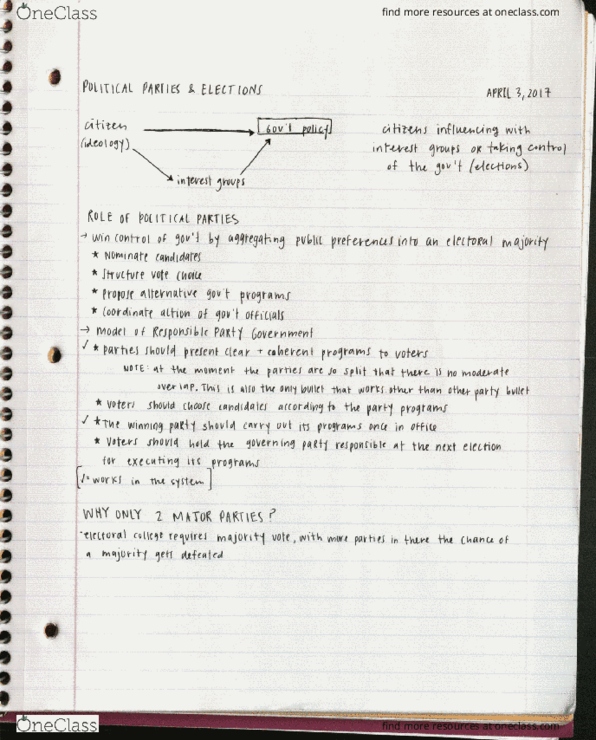 OneClass
find more resources at oneclass.com
POLITICAL PARTIES & ELECTIONS
APRIL 3, 2017
citizen
(ideology)
gov't policy
interest groups
citizens influencing with
interest groups or taking control
of the gov't (elections)
ROLE OF POLITICAL PARTIES
→ win control of gov't by aggregating public preferences into an electoral majority
* Nominate candidates
* Structure vote choice
* Propose alternative gov't programs
* Coordinate action of gov't officials
→ model of Responsible Party Government
✓ * parties should present clear + coherent programs to voters
NOTE: at the moment the parties are so split that there is no moderate
overlap. This is also the only bullet that works other than other party bullet
* voters should choose candidates according to the party programs
✓ * The winning party should carry out its programs once in office
* Voters should hold the governing party responsible at the next election
for executing its programs
[✓ = works in the system]
WHY ONLY 2 MAJOR PARTIES?
· electoral college requires majority vote, with more parties in there the chance of
a majority gets defeated
OneClass
find more resources at oneclass.com